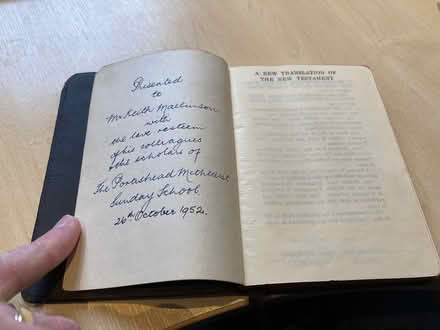 Presented
to
Mr Keith Mallinson
with
the love & esteem
of his colleagues
& the scholars of
The Portishead Methodist
Sunday School.
26th October 1952.
A NEW TRANSLATION OF
THE NEW TESTAMENT